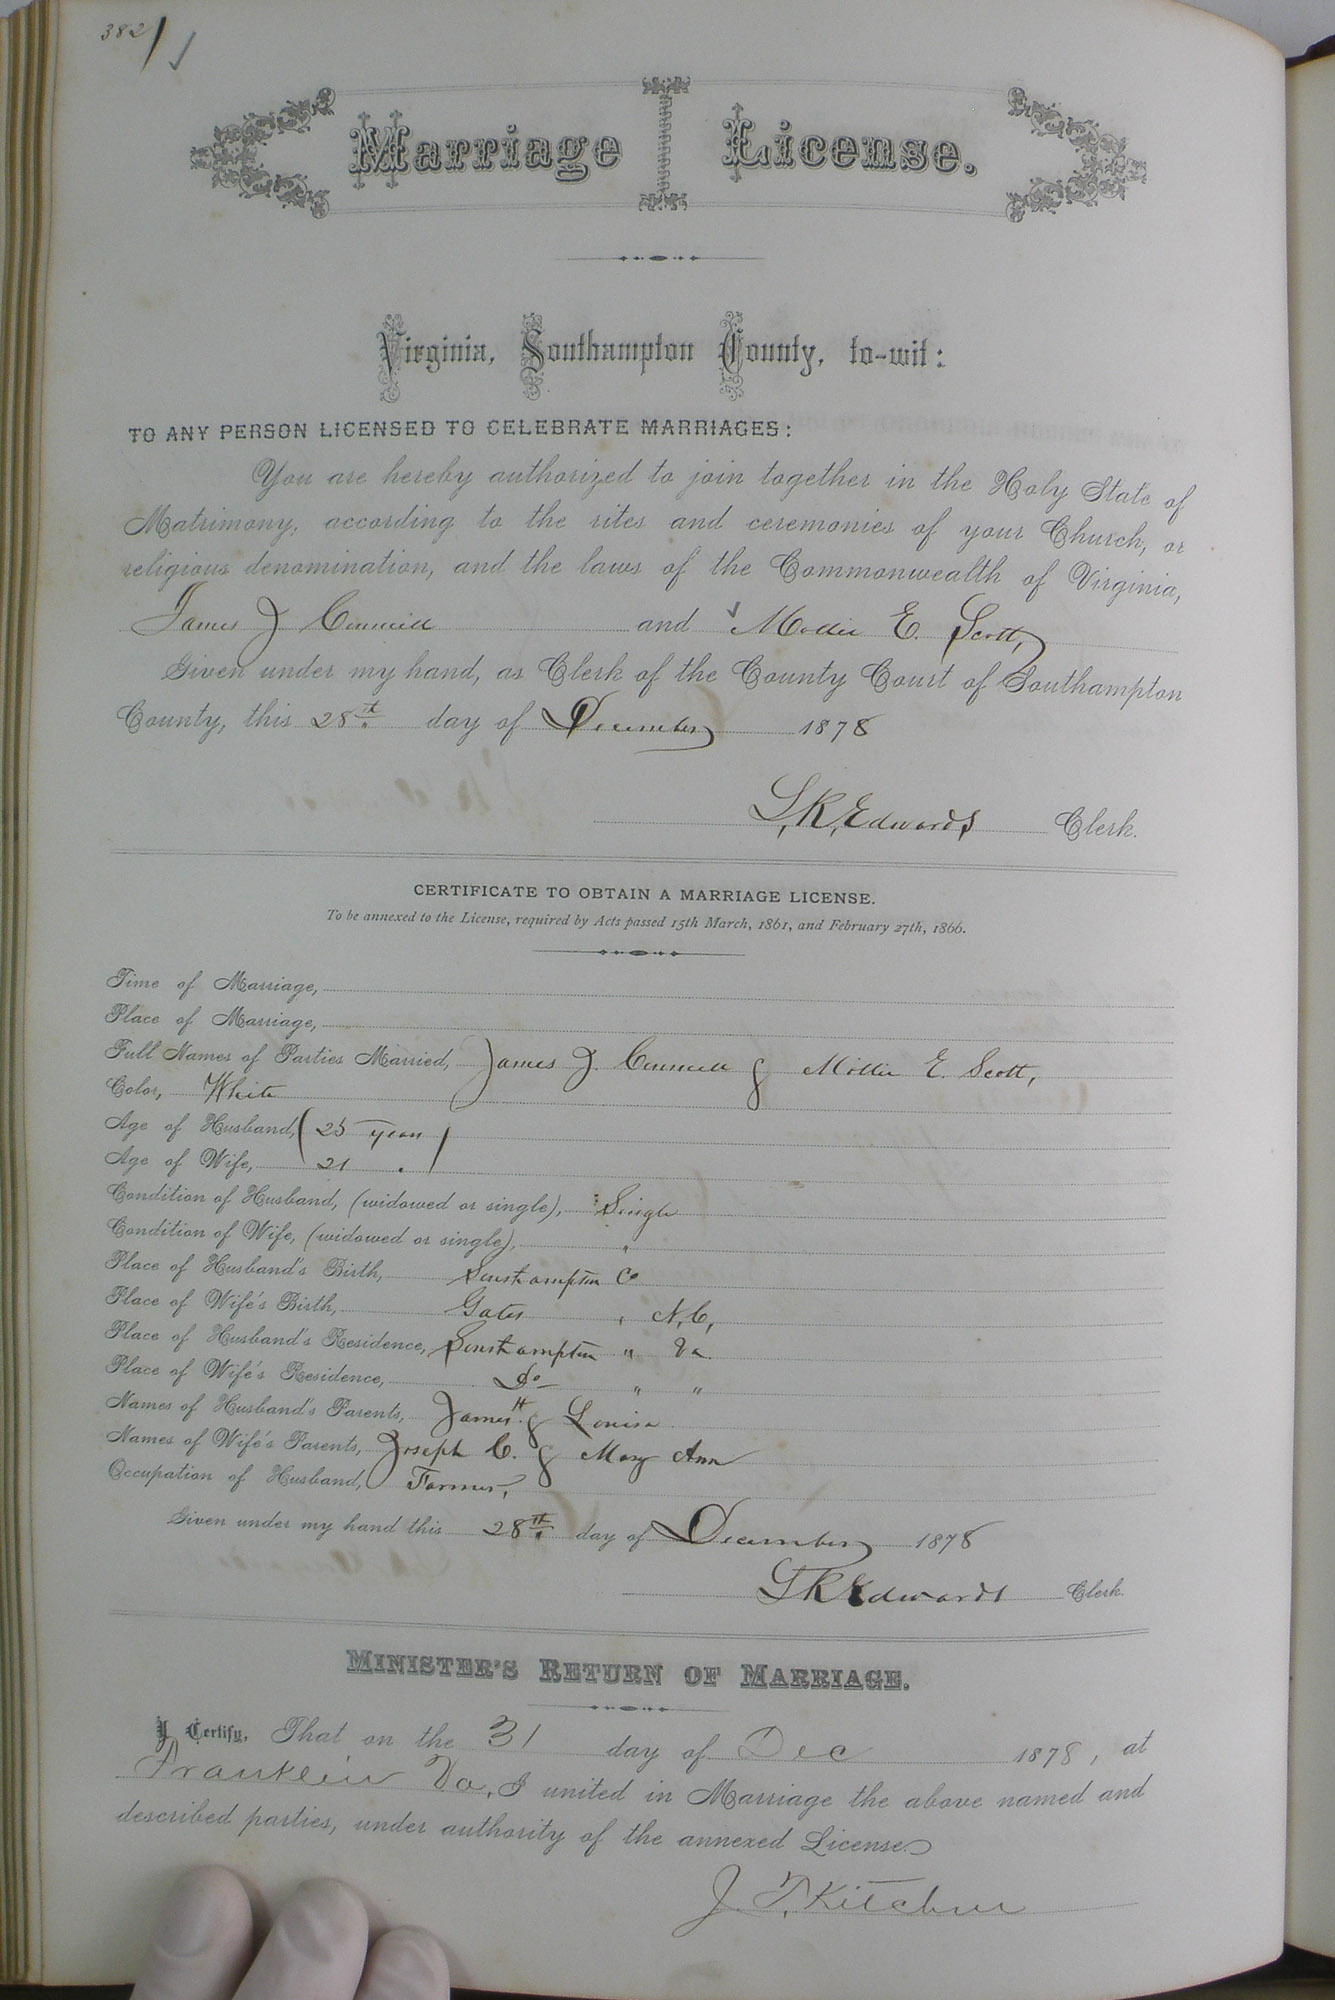 382
Marriage License.
Virginia, Southampton County, to-wit:
TO ANY PERSON LICENSED TO CELEBRATE MARRIAGES:
You are hereby authorized to join together in the Holy State of
Matrimony, according to the rites and ceremonies of your Church, or
religious denomination, and the laws of the Commonwealth of Virginia,
James J and Mollie E. Scott,
Given under my hand, as Clerk of the County Court of Southampton
County, this 28th day of December 1878
L. R. Edwards Clerk.
CERTIFICATE TO OBTAIN A MARRIAGE LICENSE.
To be annexed to the License, required by Acts passed 15th March, 1861, and February 27th, 1866.
Time of Marriage,
Place of Marriage,
Full Names of Parties Married, James J. & Mollie E. Scott,
Color, White
Age of Husband, 25 years
Age of Wife, 21 "
Condition of Husband, (widowed or single), Single
Condition of Wife, (widowed or single), "
Place of Husband's Birth, Southampton Co
Place of Wife's Birth, Gates " N.C,
Place of Husband's Residence, Southampton " Va.
Place of Wife's Residence, Do " "
Names of Husband's Parents, James H. & Louisa
Names of Wife's Parents, Joseph C. & Mary Ann
Occupation of Husband, Farmer,
Given under my hand this 28th day of December 1878
L R Edwards Clerk.
MINISTER'S RETURN OF MARRIAGE.
I Certify, That on the 31 day of Dec 1878, at
Franklin Va, I united in Marriage the above named and
described parties, under authority of the annexed License.
J. T. Kitchen